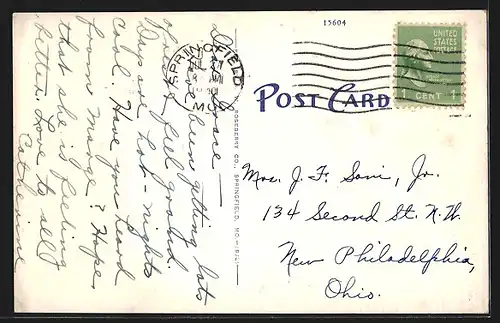 15604
UNITED
STATES
POSTAGE
1 CENT 1
SPRINGFIELD
MO.
POST CARD
Mrs. J. F. Soni, Jr.
134 Second St. N.W.
New Philadelphia,
Ohio.
Grace —
been getting lots
feel grand.
Days are hot - nights
cool. Have you heard
from Marge? Hope
that she is feeling
better. Love to all
Catherine
CO., SPRINGFIELD, MO.